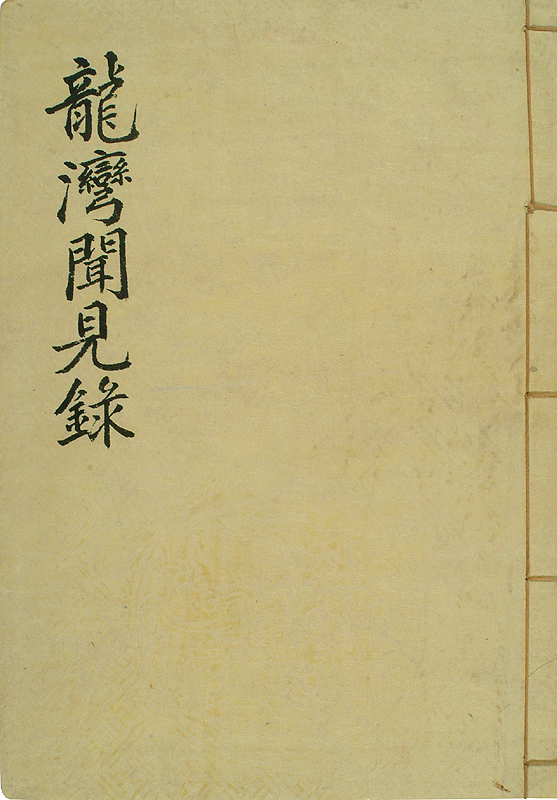 龍灣聞見錄